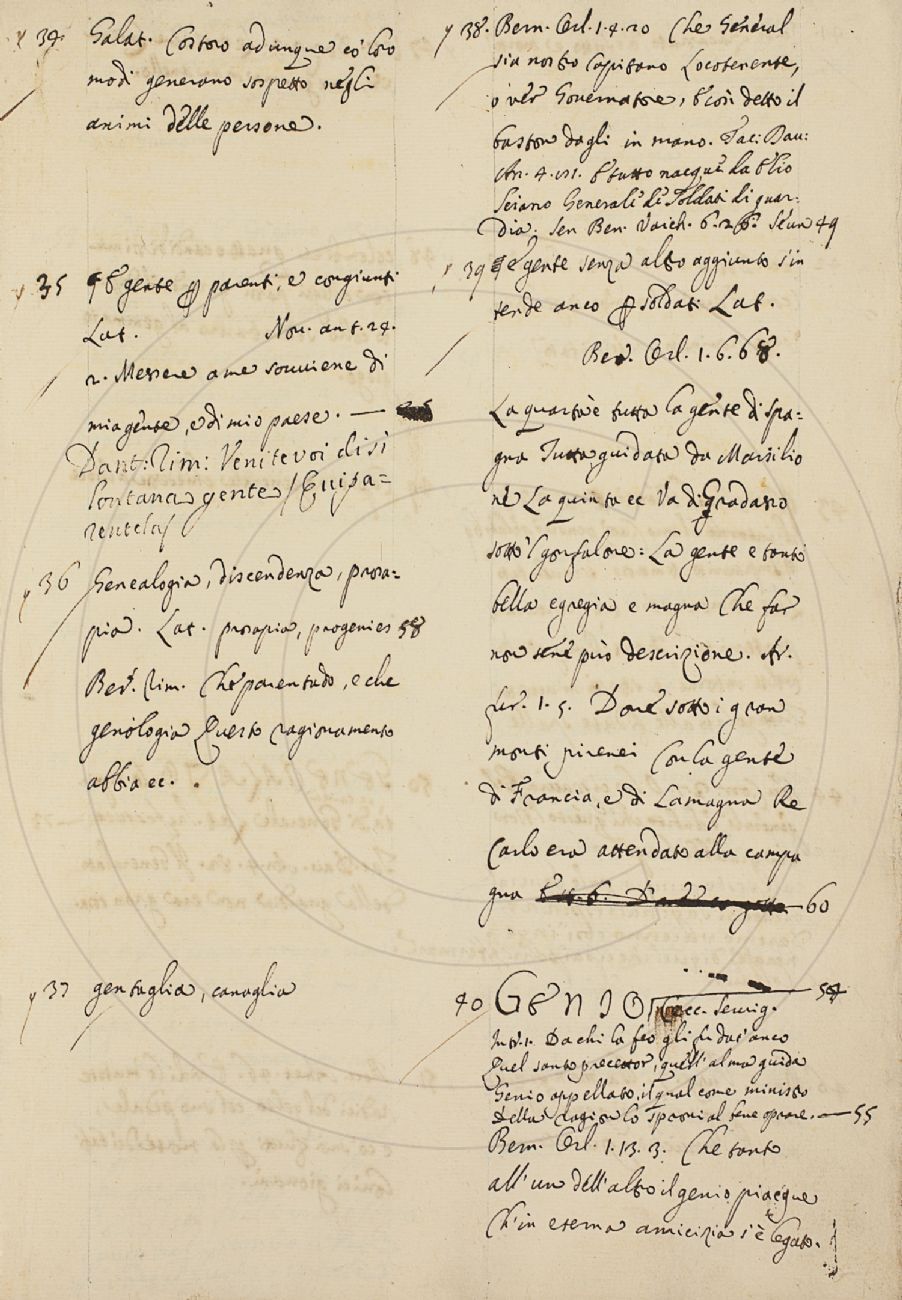 34 Galat. Costoro adunque co' loro
modi generano sospetto negli
animi delle persone.
35 gente parenti, e congiunti
Lat. Nov. ant. 24.
2. Messere a me sovviene di
mia gente, e di mio paese.
Dant: Rim: Venite voi di sì
lontana gente
36 Genealogia, discendenza, prosa=
pia. Lat. prosapia, progenies 58
Ber. Rim. Che parentado, e che
genologia Questo ragionamento
abbia ec.
37 gentaglia, canaglia
38. Bern. Orl. 1.4.20 Che General
sia nostro Capitano Locotenente,
o ver Governatore, e così detto il
baston dagli in mano. Tac: Dav:
An. 4. E tutto nacque da Elio
Seiano Generale de' Soldati di guar:
dia. Sen Ben. Varch. 49
39 gente senza altro aggiunto s'in
tende anco soldati Lat.
Ber. Orl. 1.6.68.
La quarta è tutta la gente di Spa=
gna Tutta guidata da Marsilio
La quinta ec Va di Gradasso
sotto 'l gonfalone: La gente è tanto
bella egregia e magna Che far
non se ne può descrizione. Ar.
fur. 1.5. Dove sotto i gran
monti pirenei Con la gente
di Francia, e di Lamagna Re
Carlo era attendato alla campa
gna 60
40 GENIO 54
Da chi la feo gli fu dat' anco
Quel santo precettor, quell' alma guida
Genio appellato, il qual come ministro
Della ragion lo sproni al bene oprare. 55
Bern. Orl. 1.13.3. Che tanto
all' un dell' altro il genio piacque
Ch' in eterna amicizia s' è legato.